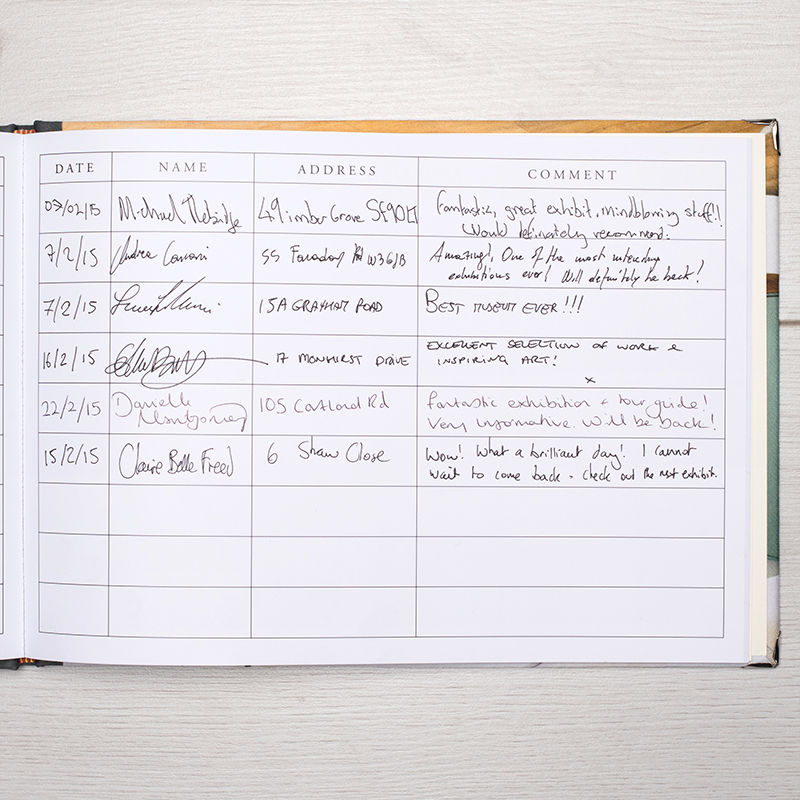 DATE NAME ADDRESS COMMENT
/02/15 Michael 49 Grove Fantastic, great exhibit, mindblowing stuff!!
Would definately recommend.
7/2/15 Andrea 55 Faraday Rd W3 6JB Amazing! One of the most interesting
exhibitions ever! Will definitely be back!
7/2/15 15A GRAHAM ROAD BEST MUSEUM EVER!!!
16/2/15 17 DRIVE EXCELLENT SELECTION OF WORK &
INSPIRING ART!
x
22/2/15 Danielle 105 Rd Fantastic exhibition + tour guide!
Montgomery Very informative. Will be back!
15/2/15 Claire Belle Freed 6 Shaw Close Wow! What a brilliant day! I cannot
wait to come back - check out the next exhibit.